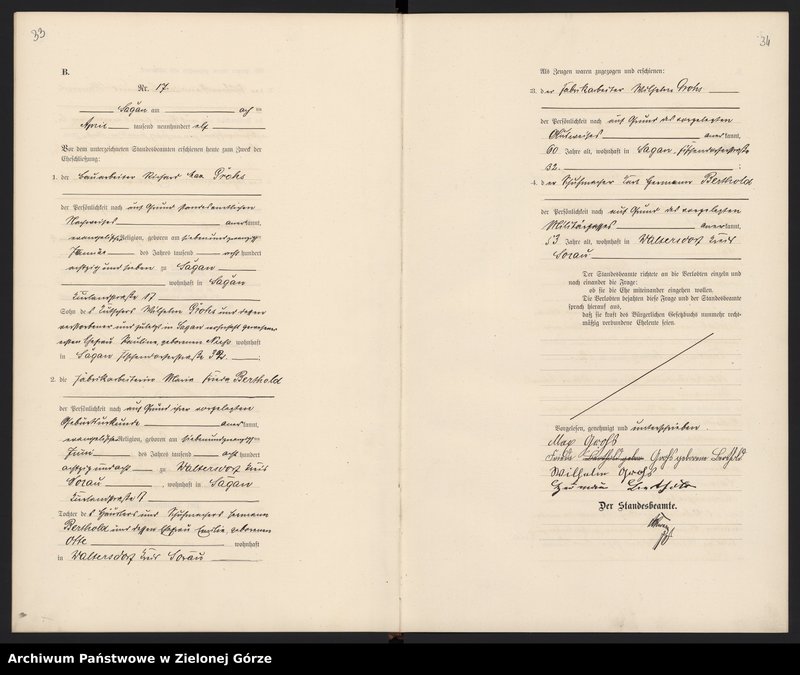 33
B.
Nr. 17.
Sagan am acht
April tausend neunhundert elf
Vor dem unterzeichneten Standesbeamten erschienen heute zum Zweck der
Eheschließung:
1. der Bauarbeiter Richard Max Grohs
der Persönlichkeit nach auf Grund standesamtlichen
Nachweises anerkannt,
evangelischer Religion, geboren am siebenundzwanzigsten
Januar des Jahres tausend acht hundert
achtzig und sieben zu Sagan
, wohnhaft in Sagan
17
Sohn des Kutschers Wilhelm Grohs und dessen
verstorbener und zuletzt in Sagan wohnhaft gewesenen
ersten Ehefrau Pauline, geborenen wohnhaft
in Sagan Fischendorferstraße 32.
2. die Fabrikarbeiterin Maria Frieda Berthold
der Persönlichkeit nach auf Grund ihrer vorgelegten
Geburtsurkunde anerkannt,
evangelischer Religion, geboren am siebenundzwanzigsten
Juni des Jahres tausend acht hundert
achtzig und acht zu Waltersdorf Kreis
Sorau, wohnhaft in Sagan
Tochter des Häuslers und Schuhmachers Hermann
Berthold und dessen Ehefrau Emilie, geborenen
Otte wohnhaft
in Waltersdorf Kreis Sorau
34
Als Zeugen waren zugezogen und erschienen:
3. der Fabrikarbeiter Wilhelm Grohs
der Persönlichkeit nach auf Grund des vorgelegten
Ausweises anerkannt,
60 Jahre alt, wohnhaft in Sagan, Fischendorferstraße
32.
4. der Schuhmacher Karl Hermann Berthold
der Persönlichkeit nach auf Grund des vorgelegten
Militärpasses anerkannt,
53 Jahre alt, wohnhaft in Waltersdorf Kreis
Sorau
Der Standesbeamte richtete an die Verlobten einzeln und
nach einander die Frage:
ob sie die Ehe miteinander eingehen wollen.
Die Verlobten bejahten diese Frage und der Standesbeamte
sprach hierauf aus,
daß sie kraft des Bürgerlichen Gesetzbuchs nunmehr recht-
mäßig verbundene Eheleute seien.
Vorgelesen, genehmigt und unterschrieben.
Max Grohs
Frieda Grohs geborene Berthold
Wilhelm Grohs
Hermann Berthold
Der Standesbeamte.
Archiwum Państwowe w Zielonej Górze